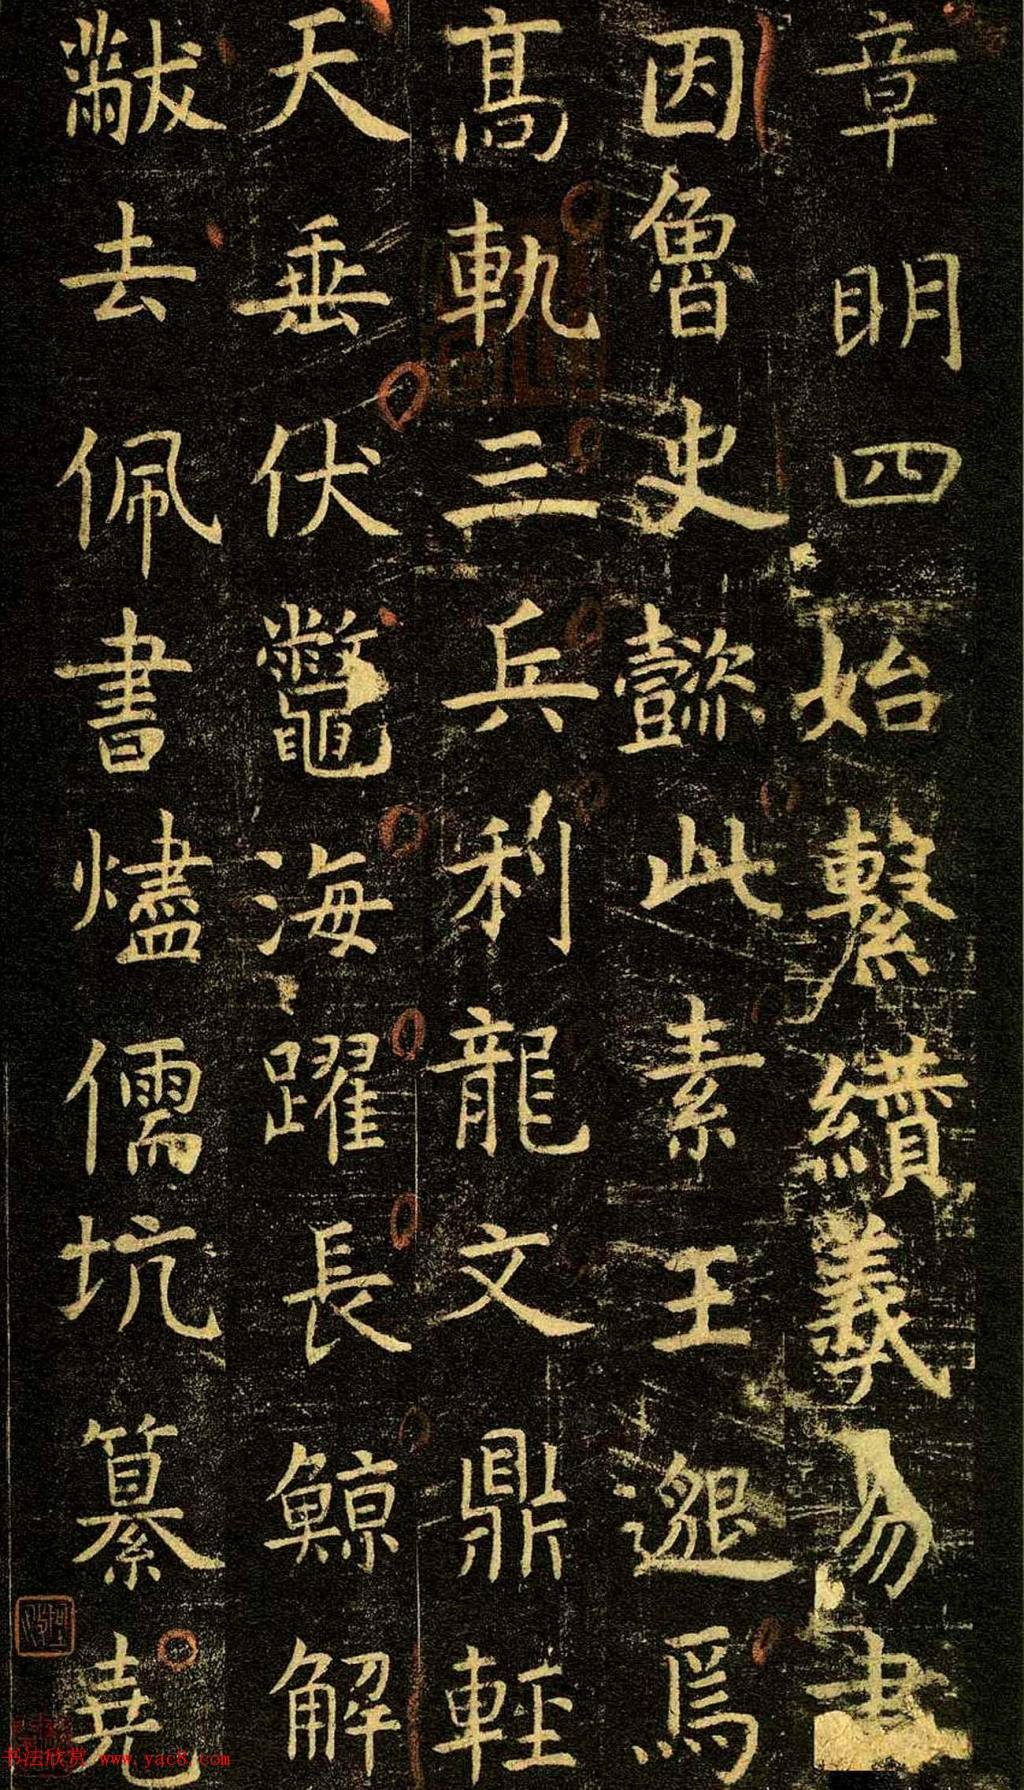 章明四始繫續羲易書
因魯史懿此素王邈焉
高軌三兵利龍文鼎輕
天垂伏鼈海躍長鯨解
黻去佩書燼儒坑纂堯
书法欣赏 www.yac8.com